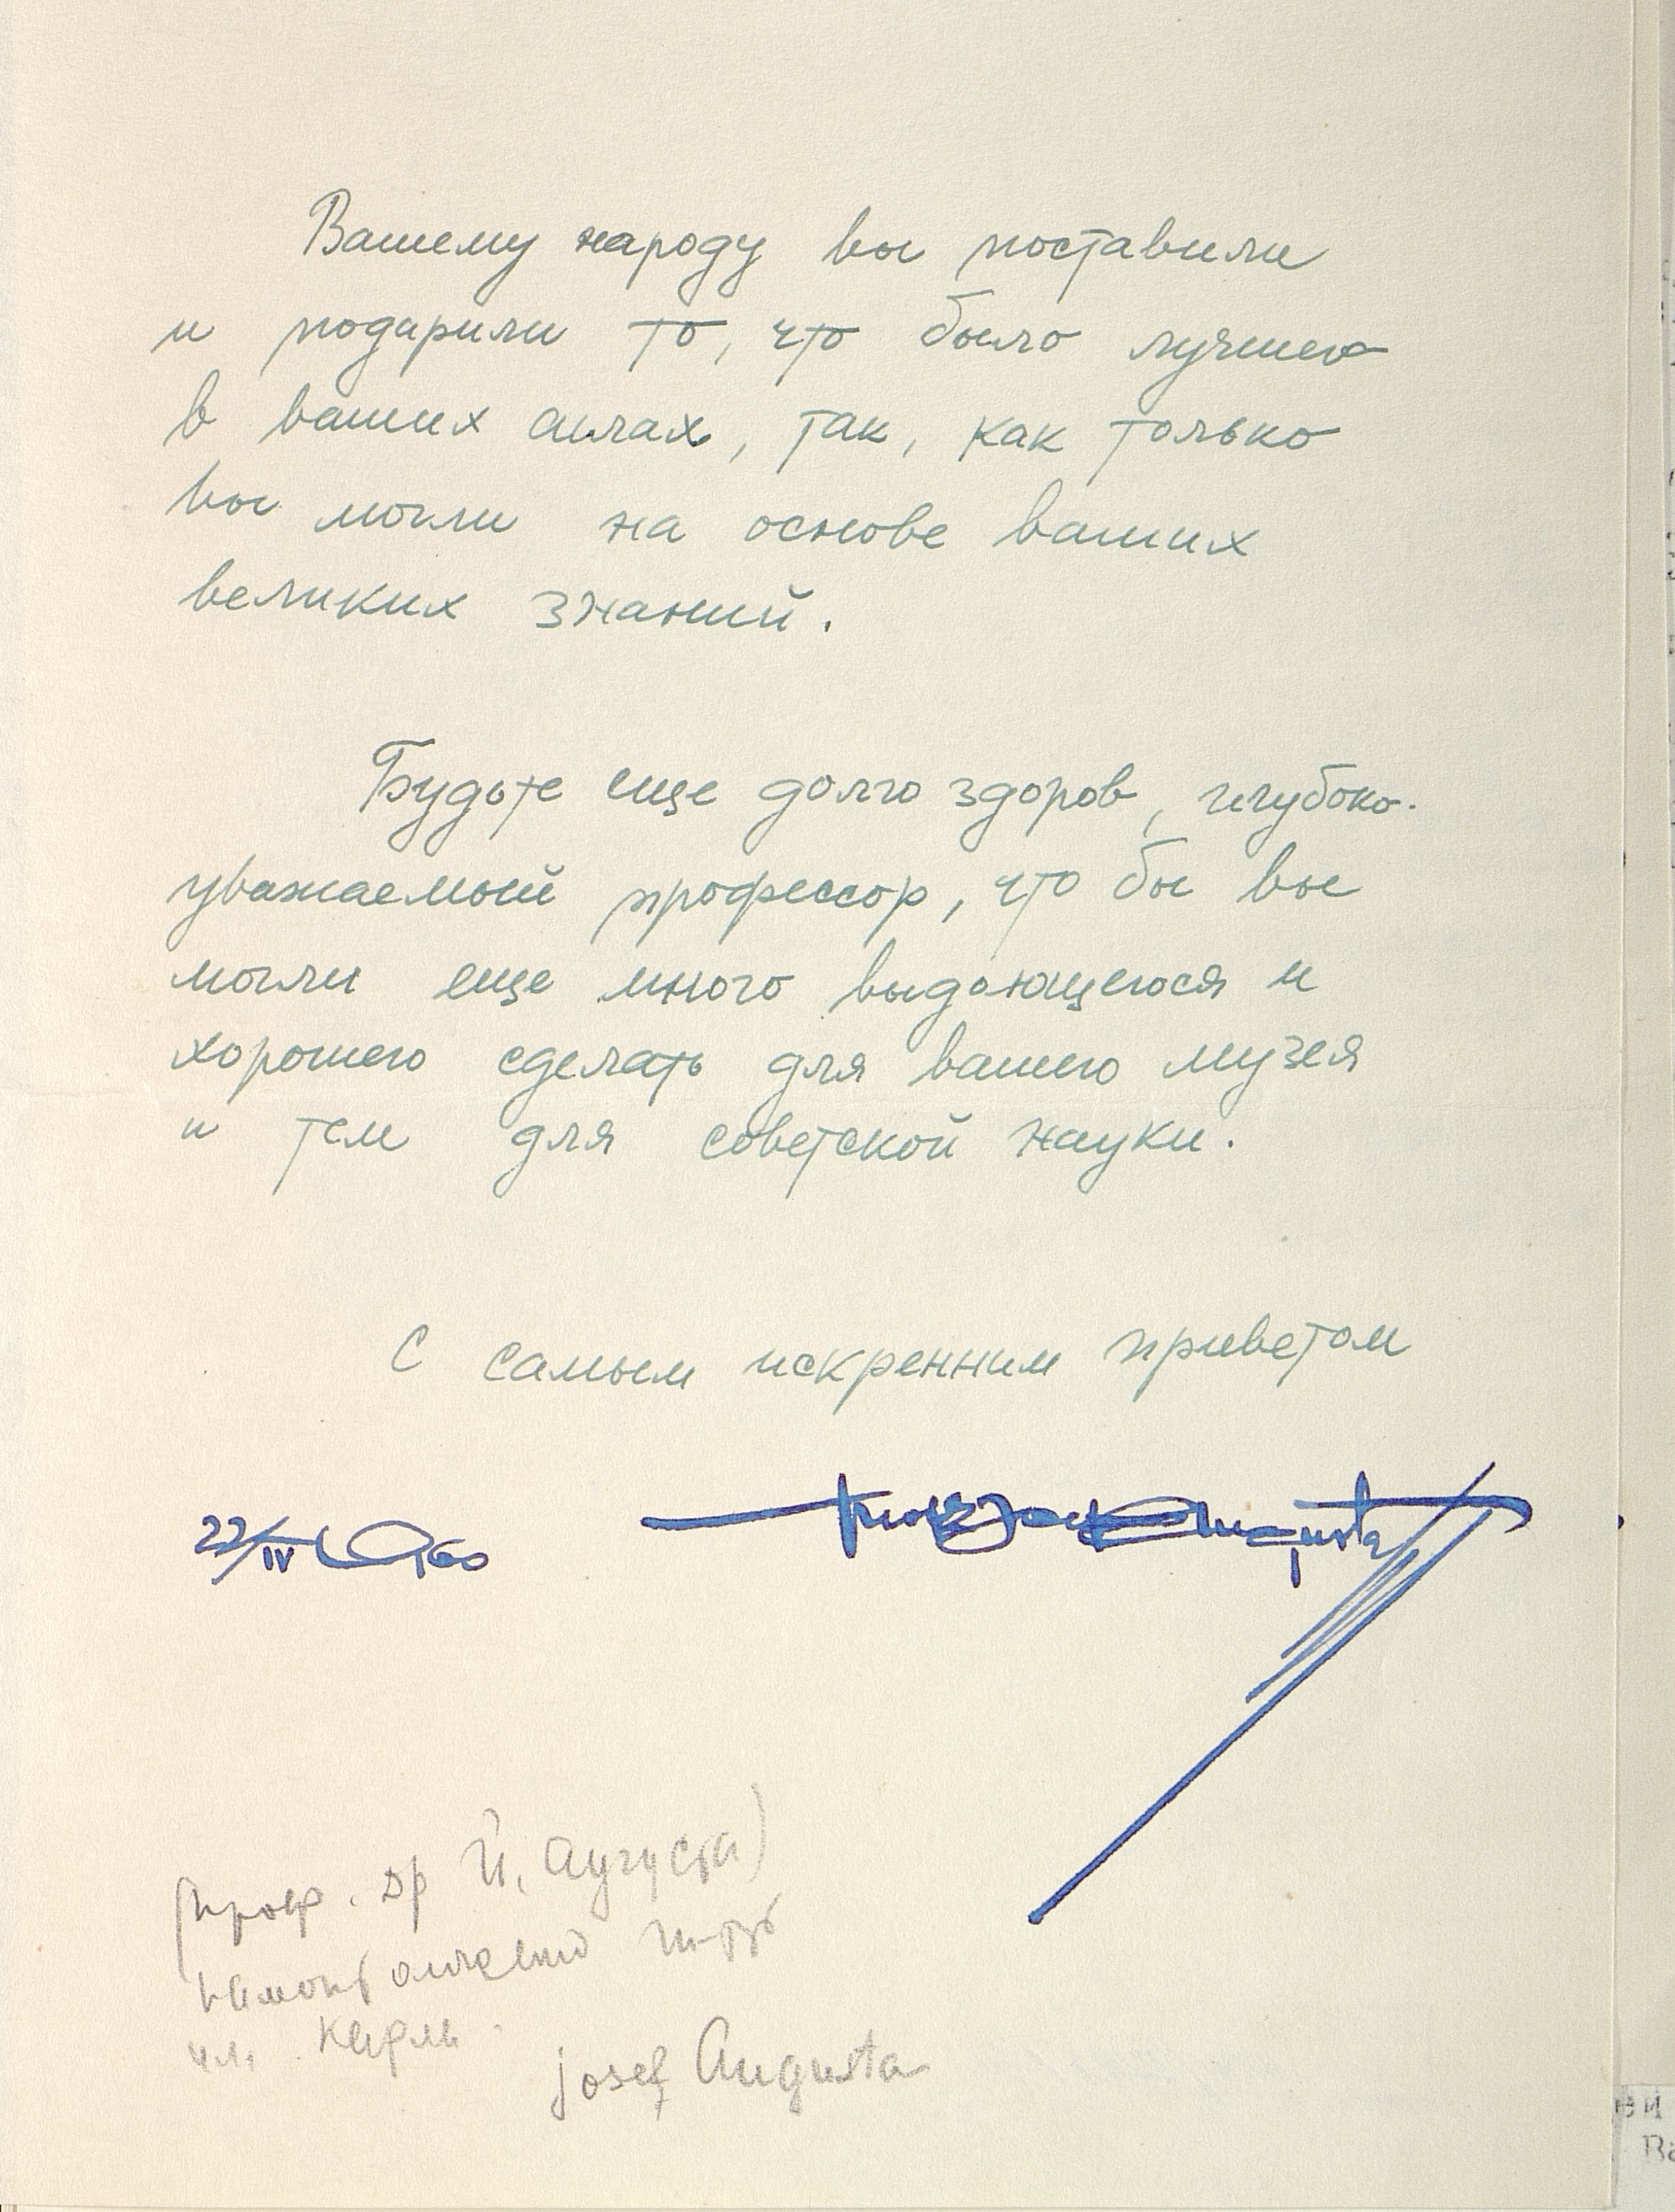 Вашему народу вы поставили
и подарили то, что было лучшего
в ваших силах, так, как только
вы могли на основе ваших
великих знаний.
Будьте еще долго здоров, глубоко-
уважаемый профессор, что бы вы
могли еще много выдающегося и
хорошего сделать для вашего музея
и тем для советской науки.
С самым искренним приветом
22/IV 1960
Augusta
(проф. др Й. Аугуста)
Карла
Josef Augusta